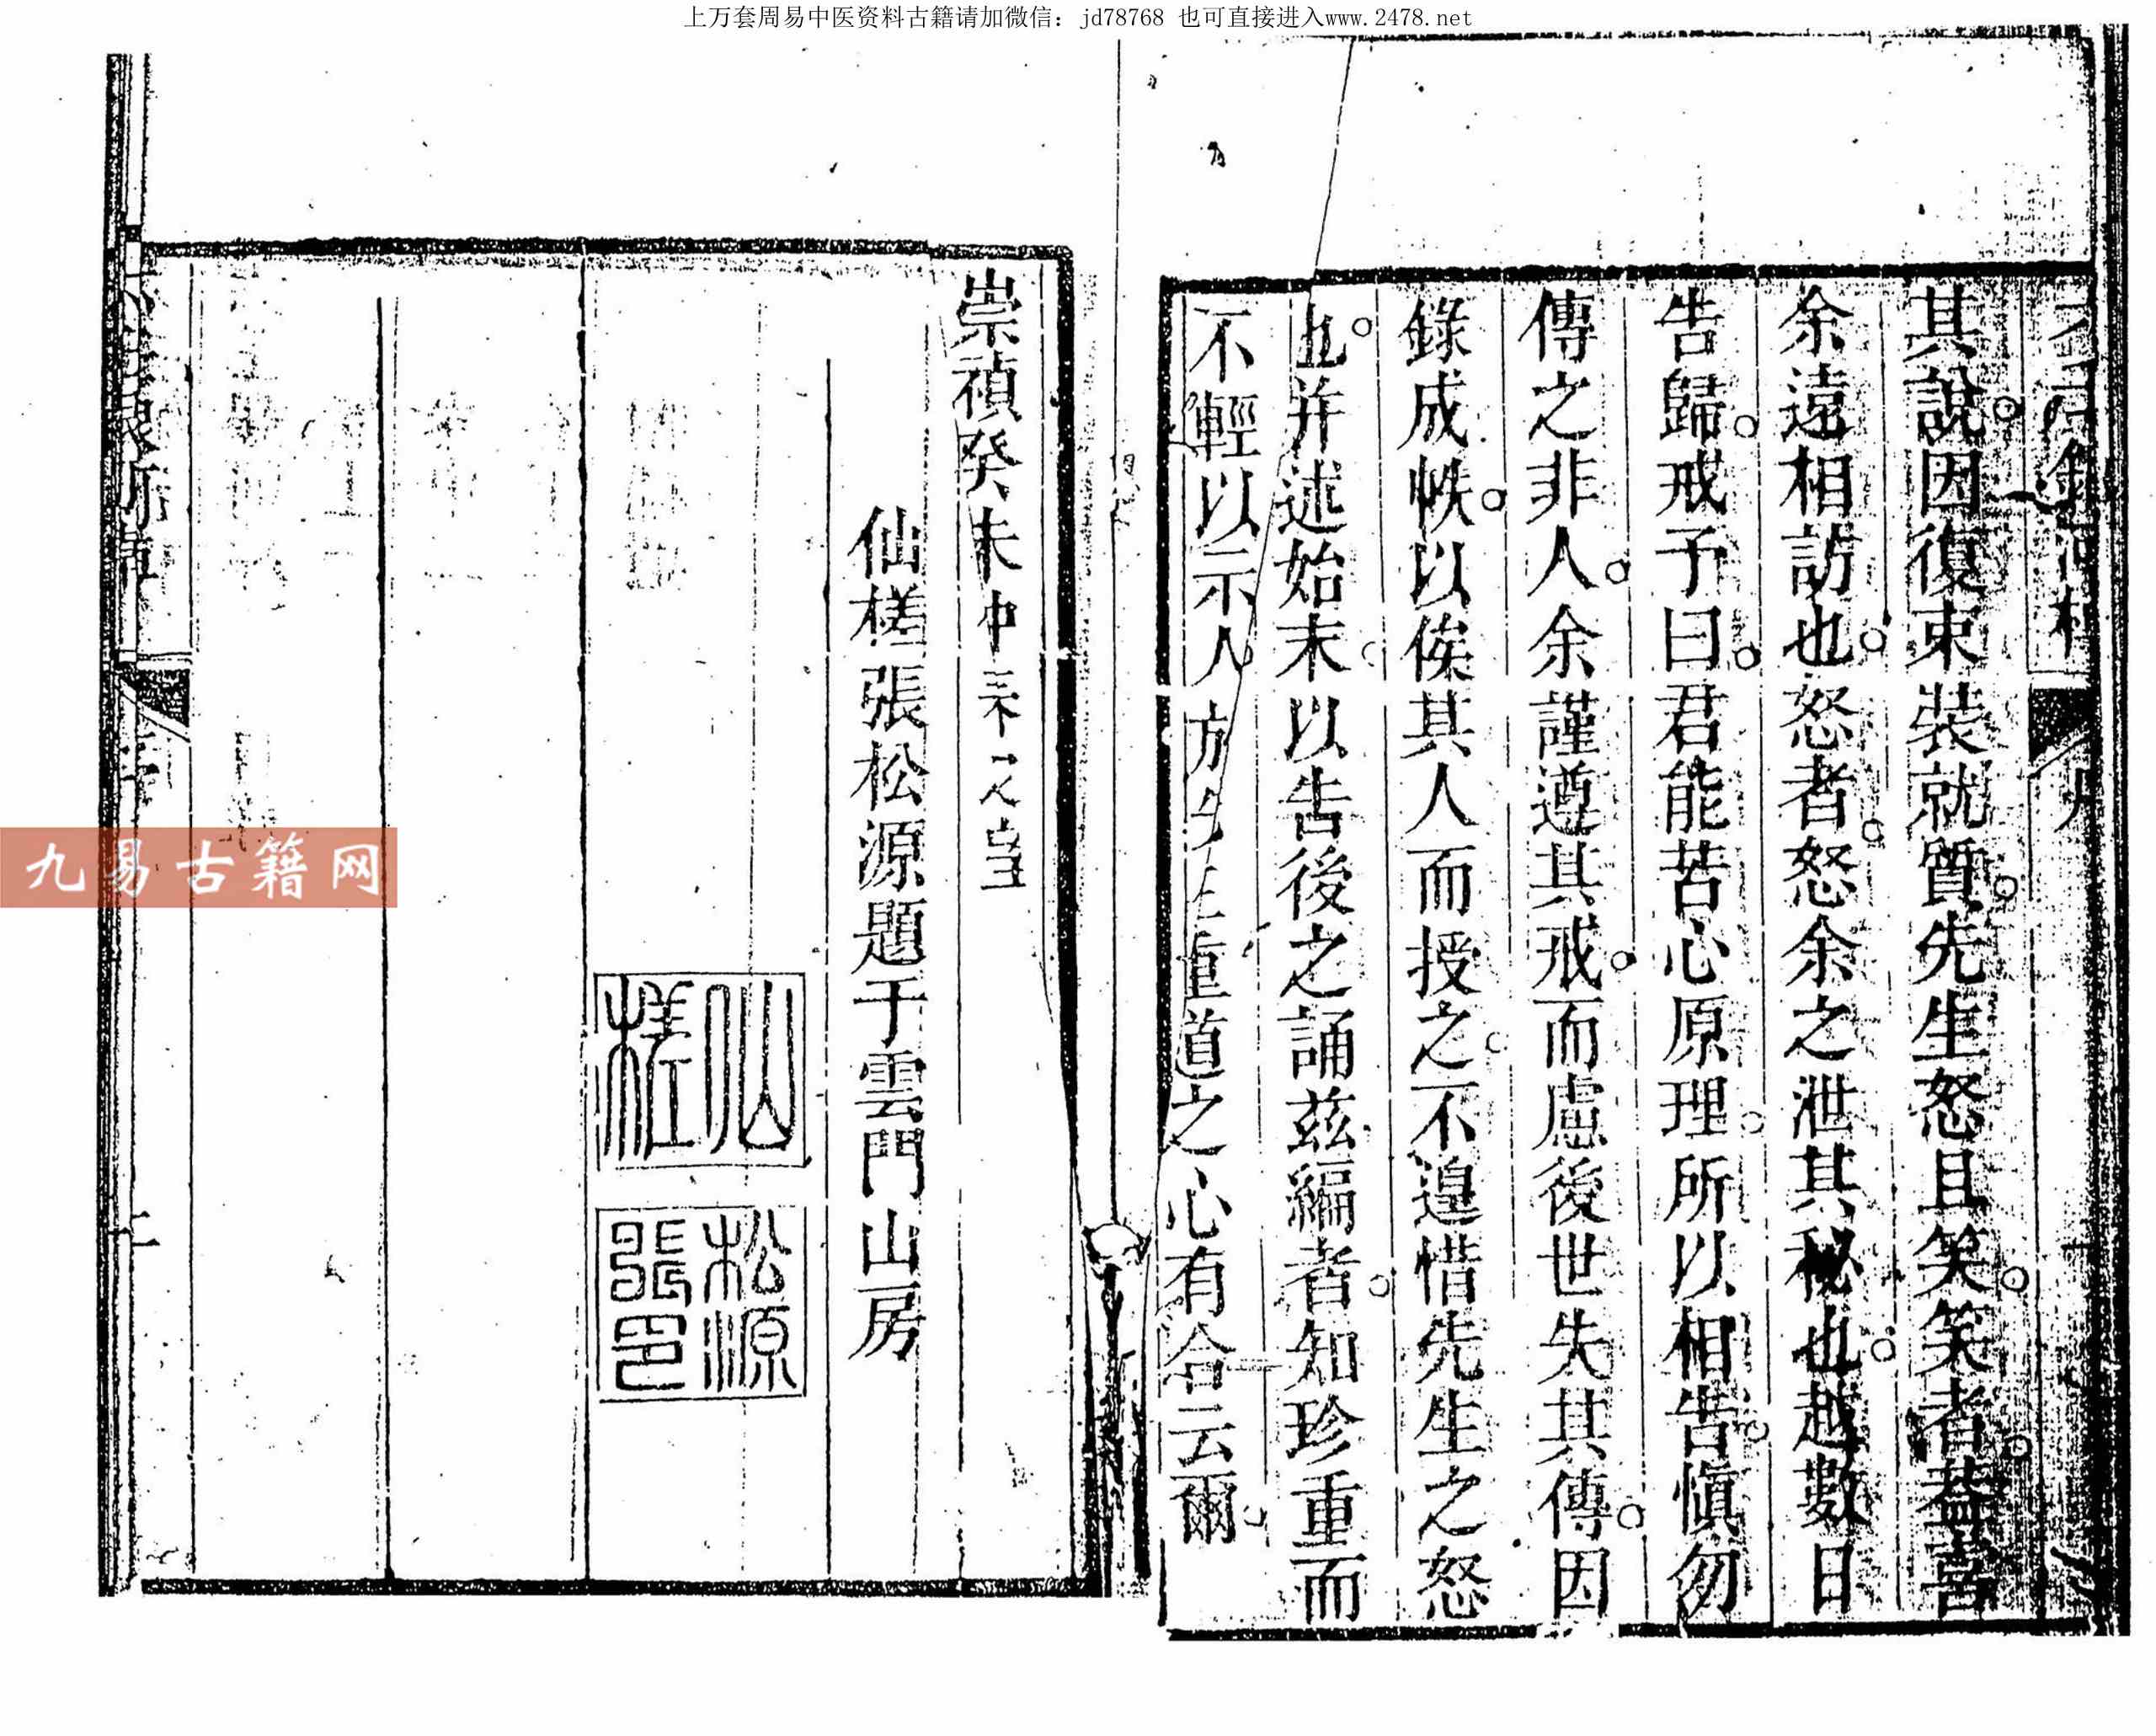 上万套周易中医资料古籍请加微信：jd78768 也可直接进入www.2478.net
其說因復束裝就質先生怒且笑笑者蓋喜
余遠相訪也怒者怒余之泄其秘也越數日
告歸戒予曰君能苦心原理所以相告慎勿
傳之非人余謹遵其戒而慮後世失其傳因
錄成帙以俟其人而授之不遑惜先生之怒
也并述始末以告後之誦茲編者知珍重而
不輕以示人方先生重道之心有合云爾
崇禎癸未中之望
仙槎張松源題于雲門山房
仙槎
松源張印
二
九易古籍网